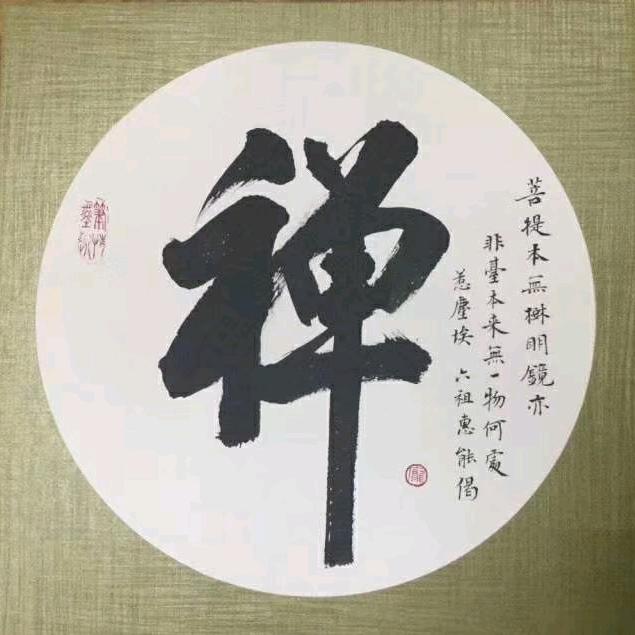 禅
菩提本無樹明鏡亦
非臺本来無一物何處
惹塵埃 六祖惠能偈